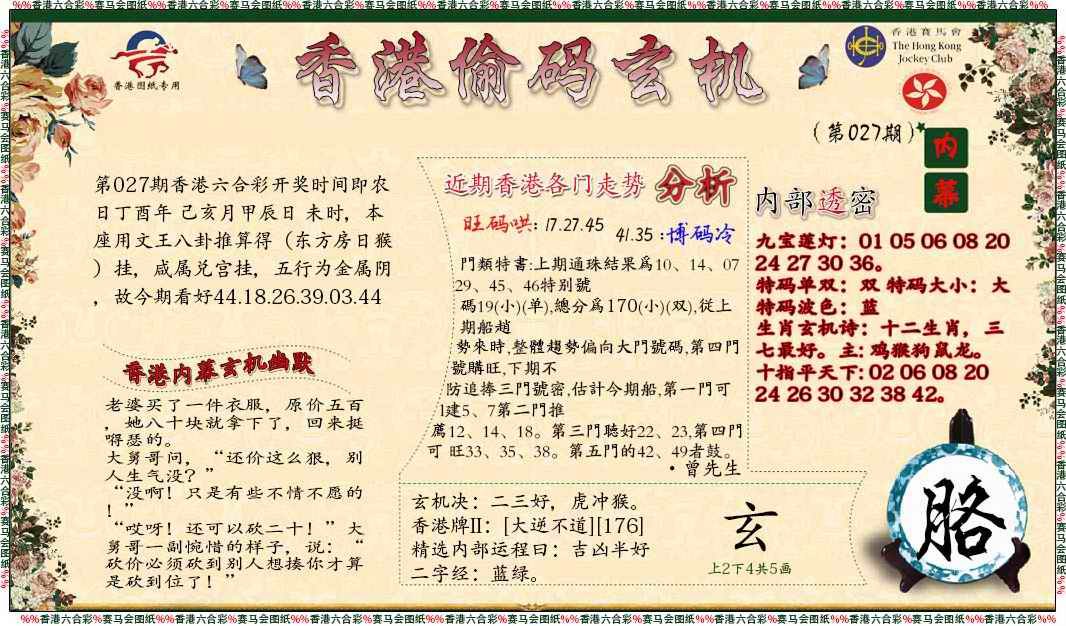 %%香港六合彩%赛马会图纸%%香港六合彩%赛马会图纸%%香港六合彩%赛马会图纸%%香港六合彩%赛马会图纸%%香港六合彩%赛马会图纸%%香港六合彩%%
香港图纸专用
香港偷码玄机
香港賽馬會
The Hong Kong
Jockey Club
(第027期)
内幕
第027期香港六合彩开奖时间即农
日丁酉年 己亥月甲辰日 未时，本
座用文王八卦推算得（东方房日猴
）挂，咸属兑宫挂，五行为金属阴
，故今期看好44.18.26.39.03.44
香港内幕玄机幽默
老婆买了一件衣服，原价五百
，她八十块就拿下了，回来挺
嘚瑟的。
大舅哥问，“还价这么狠，别
人生气没？”
“没啊！只是有些不情不愿的
！”
“哎呀！还可以砍二十！”大
舅哥一副惋惜的样子，说：“
砍价必须砍到别人想揍你才算
是砍到位了！”
近期香港各门走势 分析
旺码哄: 17.27.45
41.35 :博码冷
門類特書:上期通珠結果爲10、14、07
29、45、46特别號
碼19(小)(单),總分爲170(小)(双),從上
期船趟
勢來時,整體趨勢偏向大門號碼,第四門
號購旺,下期不
防追捧三門號密,估計今期船,第一門可
1建5、7第二門推
薦12、14、18。第三門聽好22、23,第四門
可 旺33、35、38。第五門的42、49者鼓。
·曾先生
玄机决：二三好，虎冲猴。
香港牌II：[大逆不道][176]
精选内部运程曰：吉凶半好
二字经：蓝绿。
玄
上2下4共5画
内部透密
九宝莲灯：01 05 06 08 20
24 27 30 36。
特码单双：双 特码大小：大
特码波色：蓝
生肖玄机诗：十二生肖，三
七最好。主: 鸡猴狗鼠龙。
十指平天下: 02 06 08 20
24 26 30 32 38 42。
胳
%%香港六合彩%赛马会图纸%%香港六合彩%赛马会图纸%%香港六合彩%赛马会图纸%%香港六合彩%赛马会图纸%%香港六合彩%赛马会图纸%%香港六合彩%%